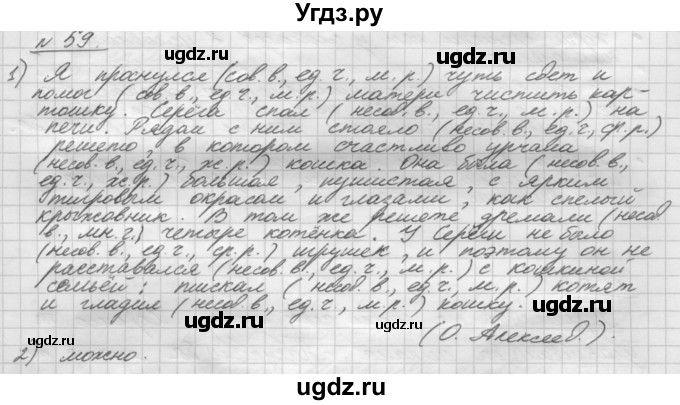 Угдз.ру
№ 59.
1) Я проснулся (сов.в., ед.ч., м.р.) чуть свет и
помог (сов.в., ед.ч., м.р.) матери чистить кар-
тошку. Серёга спал (несов.в., ед.ч., м.р.) на
печи. Рядом с ним стояло (несов.в., ед.ч., ср.р.)
решето, в котором счастливо урчала
(несов.в., ед.ч., ж.р.) кошка. Она была (несов.в.,
ед.ч., ж.р.) большая, пушистая, с ярким
тигровым окрасом и глазами, как спелый
крыжовник. В том же решете дремали (несов.
в., мн.ч.) четыре котёнка. У Серёги не было
(несов.в., ед.ч., ср.р.) игрушек, и поэтому он не
расставался (несов.в., ед.ч., м.р.) с кошкиной
семьёй: тискал (несов.в., ед.ч., м.р.) котят
и гладил (несов.в., ед.ч., м.р.) кошку.
(О. Алексеев.).
2) можно.
uGdz.ru
uGdz.ru
uGdz.ru
uGdz.ru
uGdz.ru
uGdz.ru
uGdz.ru
uGdz.ru